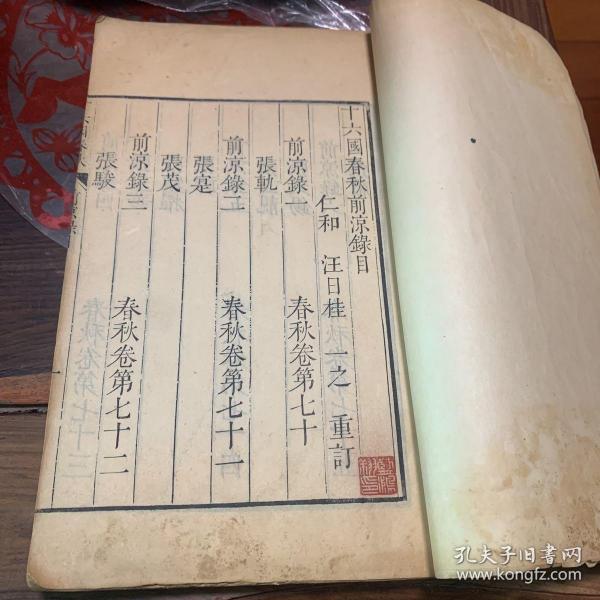 十六國春秋前涼錄目
仁和 汪日桂 一之 重訂
前涼錄一 春秋卷第七十
張軌
前涼錄二 春秋卷第七十一
張寔
張茂
前涼錄三 春秋卷第七十二
張駿
孔夫子旧书网
www.kongfz.com